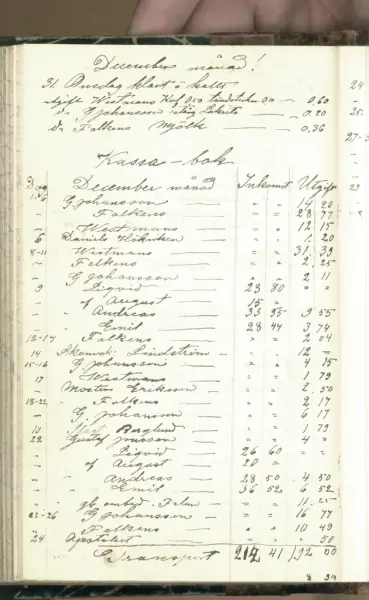 December månad!
31 Onsdag klart o kallt
utgift Westmans Kaf 0.50 tändstickor 0.10 — 0,60
do G Johansson — 0.20
do Falkens Mjölk — 0.36
Kassa-bok
Dag December månad Inkomst Utgift
G Johansson — " " 14 20
" Falkens — " " 28 77
" Westmans — " " 12 15
6 Daniels — " " 1. 20
8-11 Westmans — " " 31 39
" Falkens — " " 2. 25
" G Johansson — " " 2 11
9 Liqvid — 23 80 " "
" af August — 15 "
" " Andreas — 33 95 9 55
" " Emil — 28 44 3 74
12-17 Falkens — " " 2 04
14 Skomak. Lindström — " " 12 "
15-16 G Johansson — " " 4 15
17 Westmans — " " 1 79
" Moster Erikson — " " 2. 50
18-22 Falkens — " " 2 17
" G. Johansson — " " 6 17
Berglund — " " 1 79
22 Gustaf Jonsson — " " 4 "
" Liqvid — 26 60 " "
" af August — 20 "
" " Andreas — 28 50 4 50
" " Emil — 36 52 6 52
" Falun — " " 11.
22-26 G Johansson — " " 16 77
" Falkens — " " 10 49
24 Apoteket — " " " 50
Transport 212 41 192 00
24
25
27-3
29